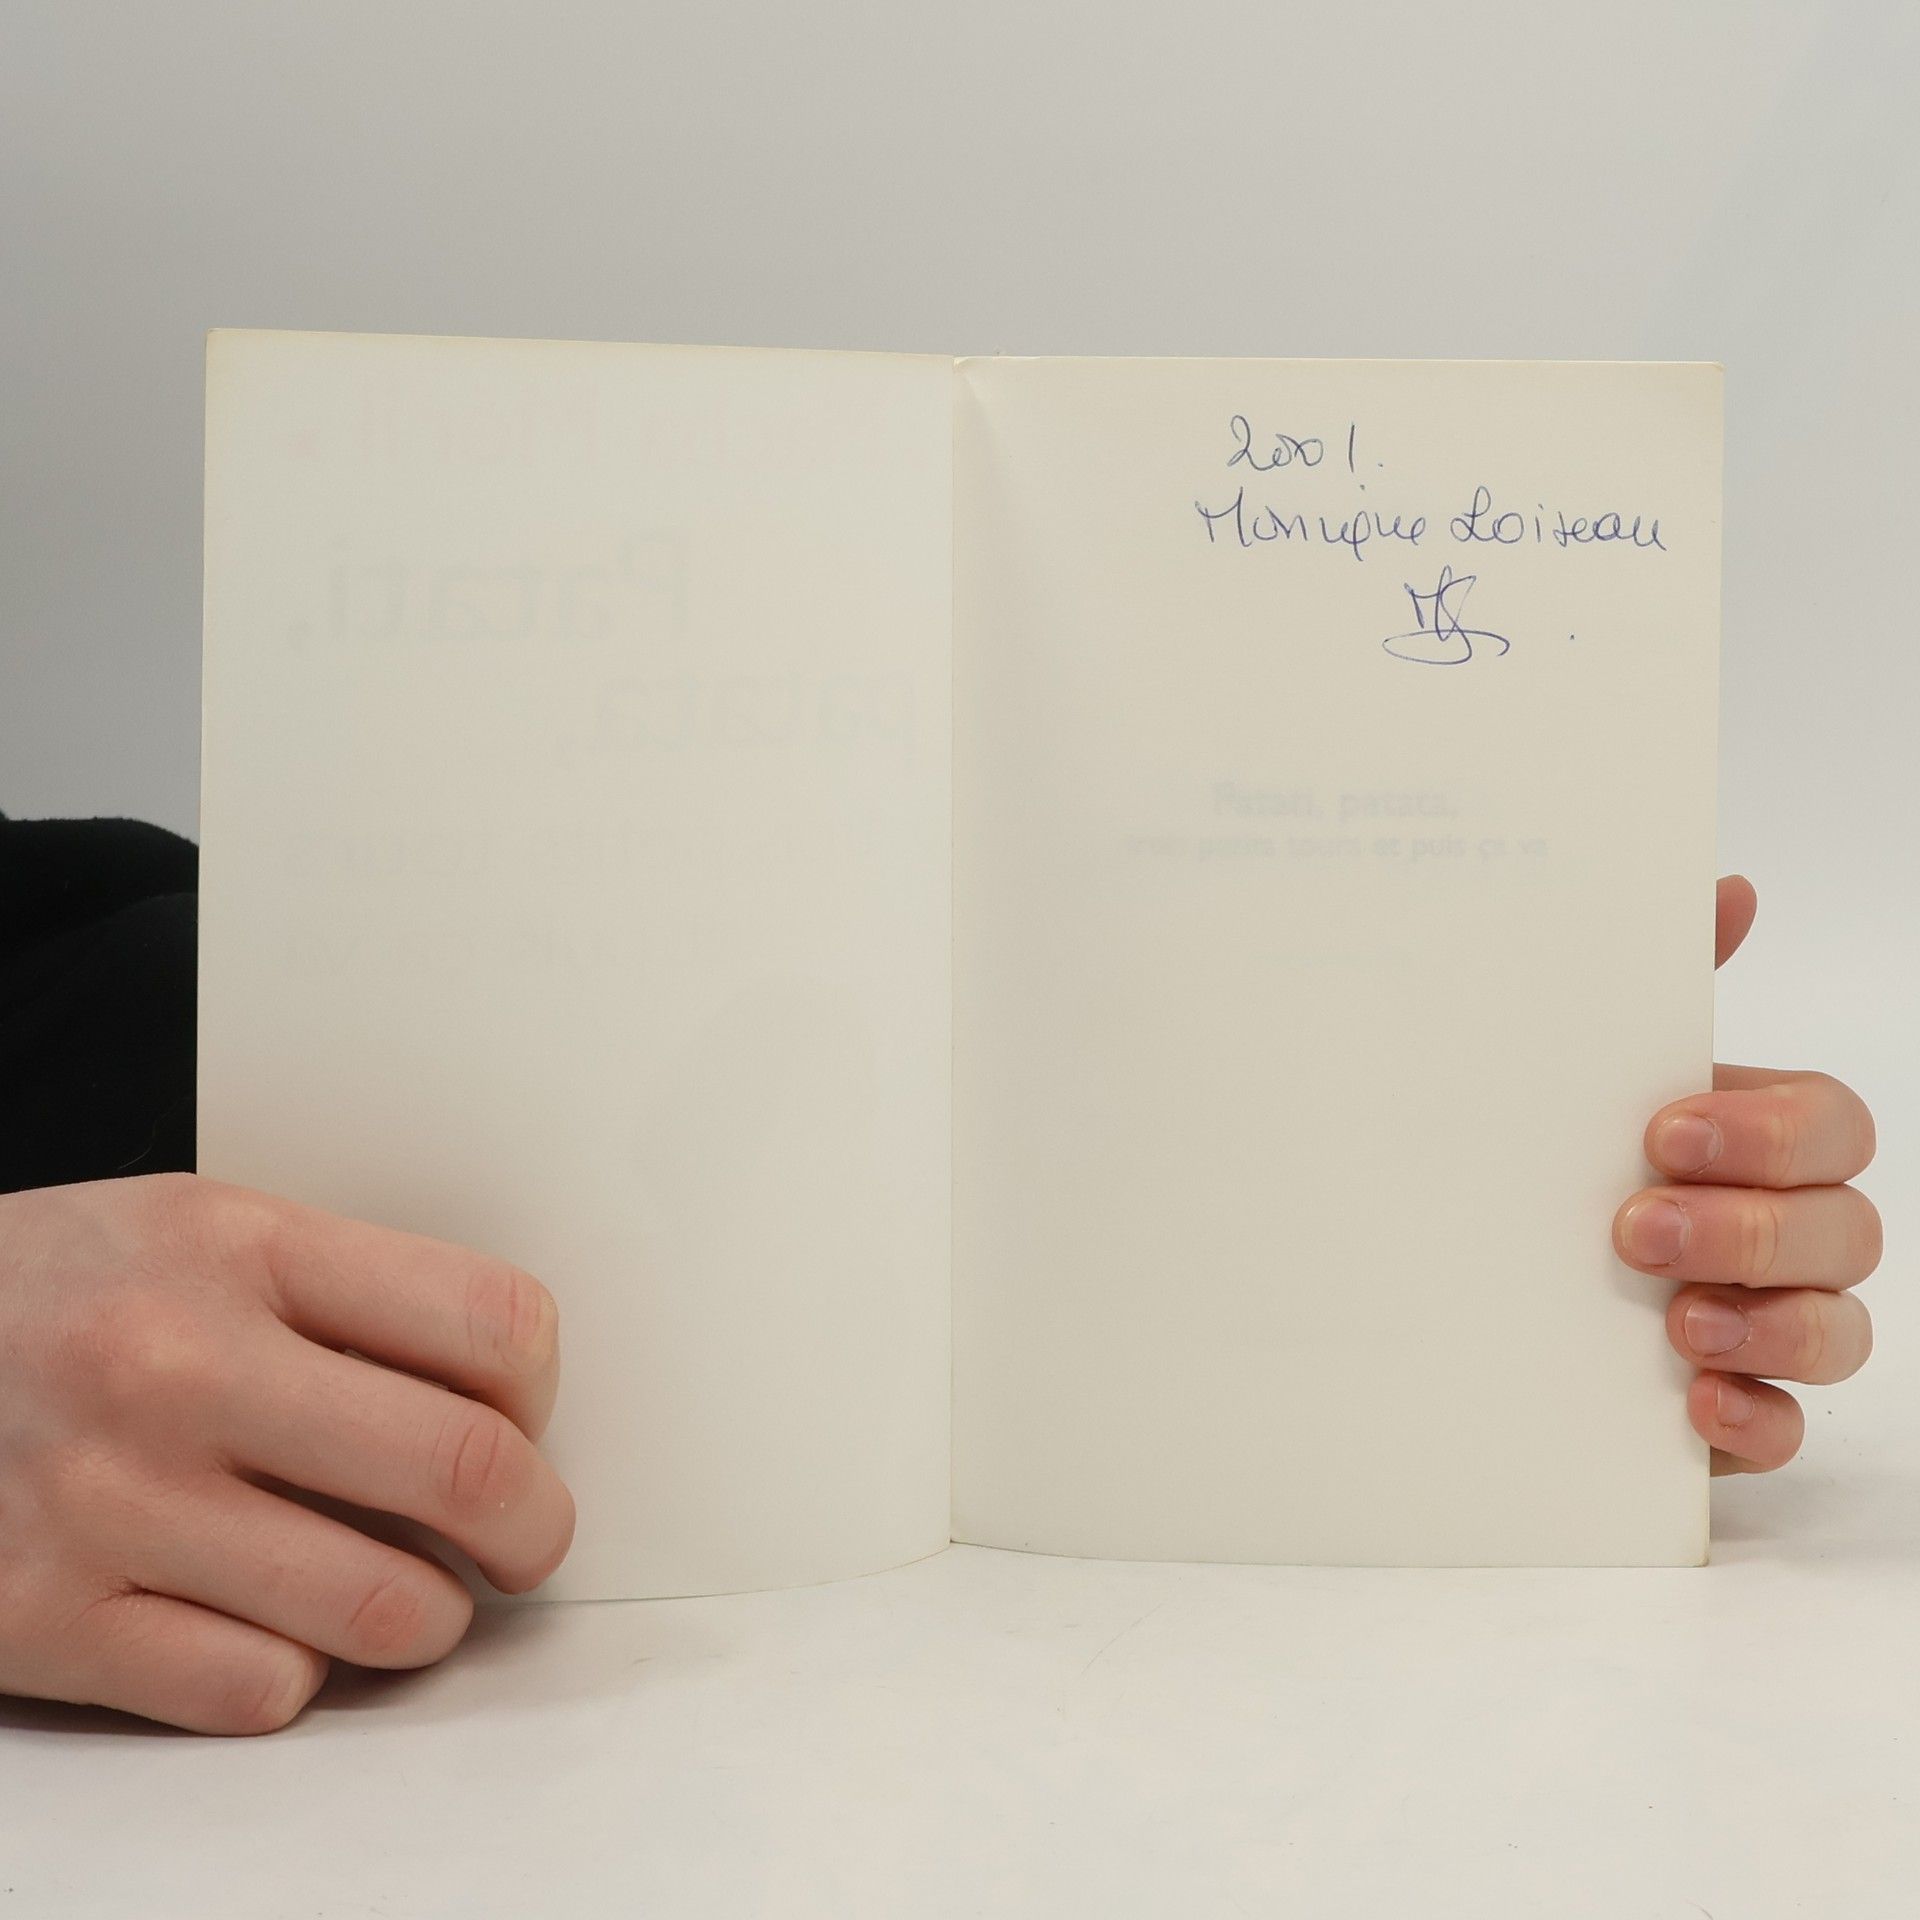 Patati,
patata,
2001.
Monique Loiseau
Patati, patata,
trois petits tours et puis ça va